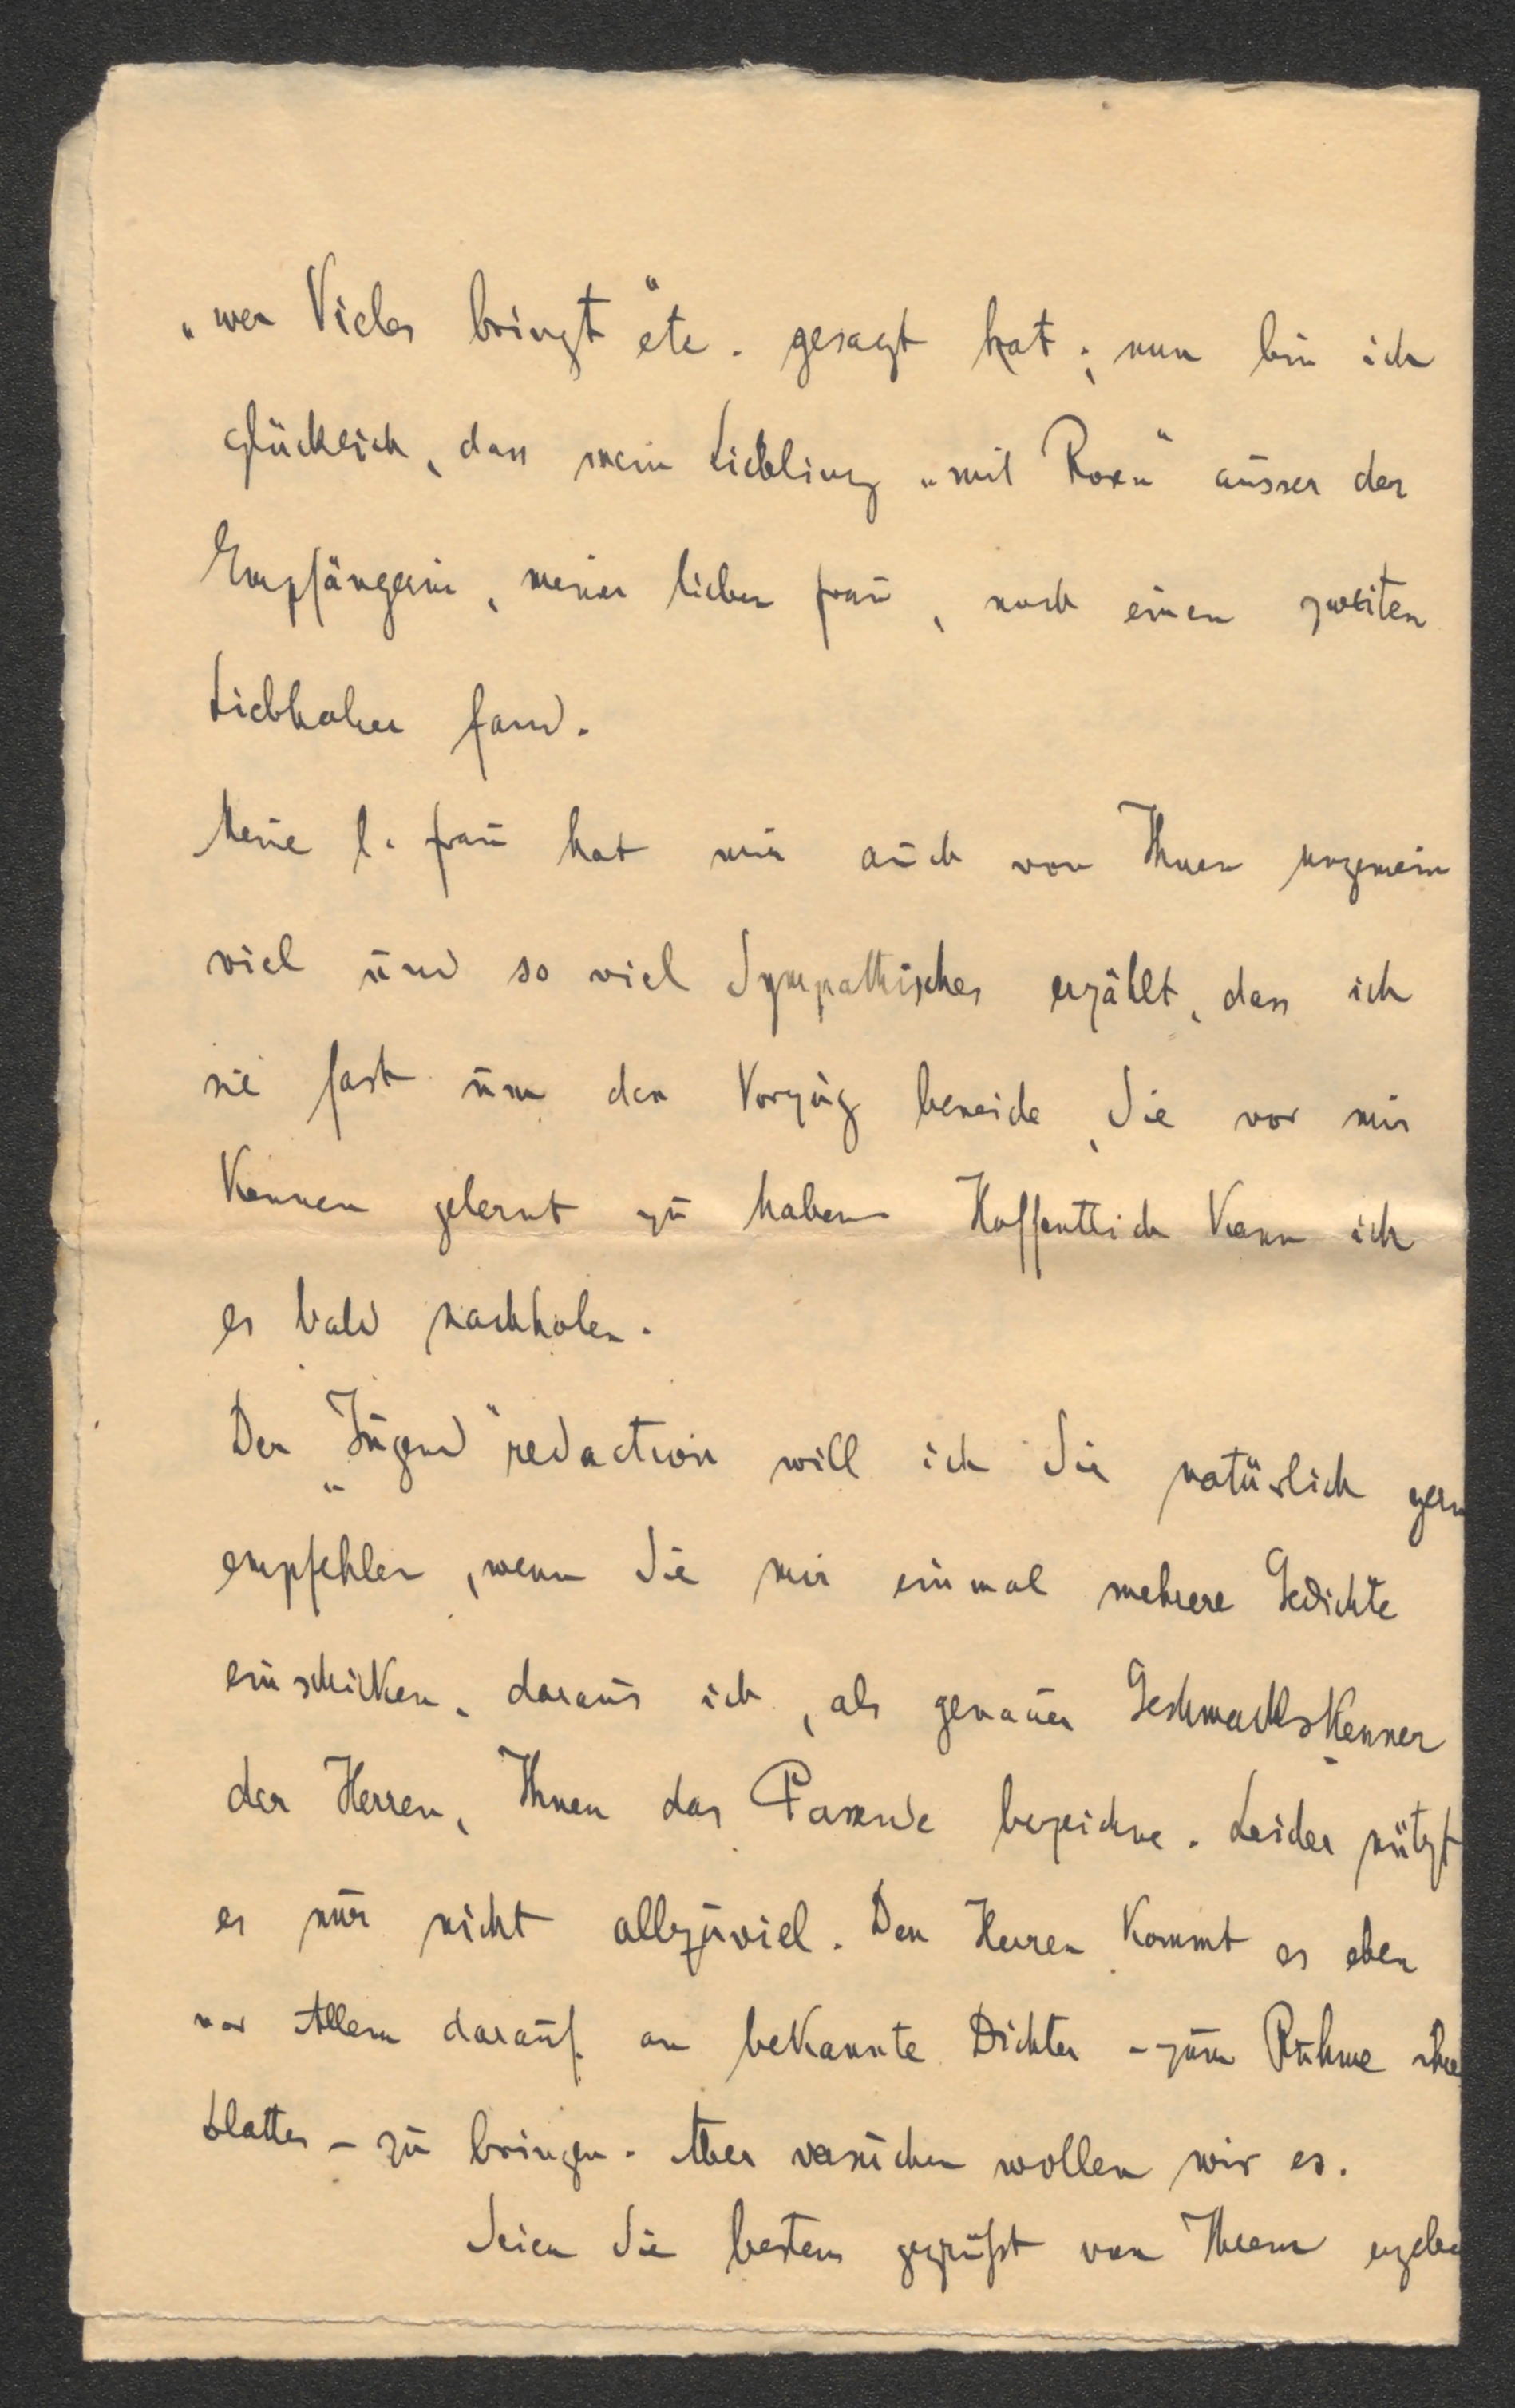 „wer Vieles bringt" etc. gesagt hat; nun bin ich
glücklich, dass mein Liebling „mit Rosen" ausser der
Empfängerin, meiner lieben Frau, noch einen zweiten
Liebhaber fand.
Meine l. Frau hat mir auch von Ihnen ungemein
viel und so viel Sympathisches erzählt, dass ich
sie fast um den Vorzug beneide, Sie vor mir
kennen gelernt zu haben. Hoffentlich kann ich
es bald nachholen.
Der „Jugend"redaction will ich Sie natürlich gern
empfehlen, wenn Sie mir einmal mehrere Gedichte
einschicken, daraus ich, als genauer Geschmackskenner
der Herren, Ihnen das Passende bezeichne. Leider nützt
es nur nicht allzuviel. Den Herren kommt es eben
vor Allem darauf an bekannte Dichter – zum Ruhme ihres
Blattes – zu bringen. Aber versuchen wollen wir es.
Seien Sie bestens gegrüßt von Ihrem ergeb